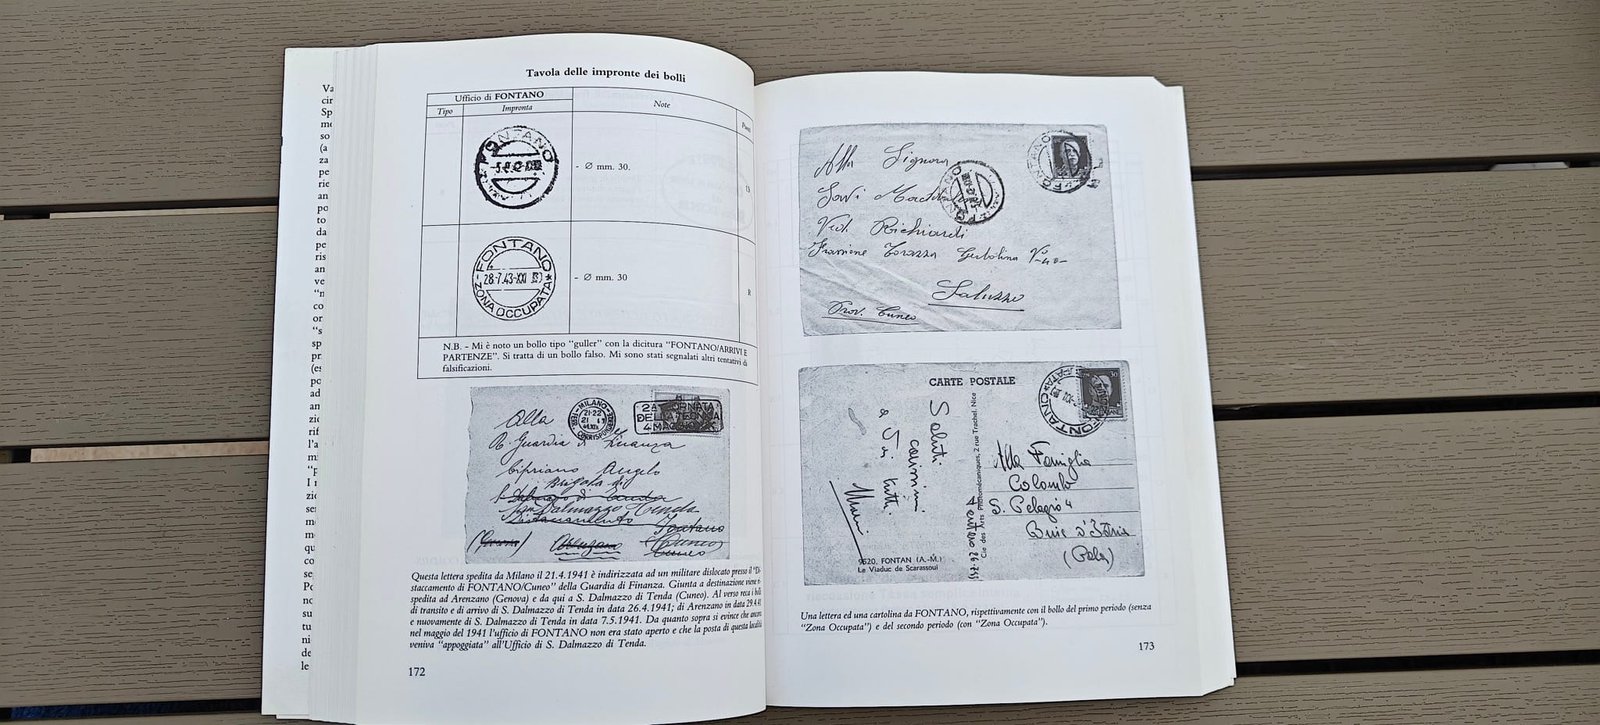 Va
cir
Sp
me
so
(a
za
pe
rie
an
po
to
da
pe
ris
an
ve
"n
co
or
"s
sp
pr
(es
po
ad
an
zic
rif
l'a
m
"p
I r
zic
se
me
qu
co
se
Po
no
su
tu
ni
de
le
Tavola delle impronte dei bolli
Ufficio di FONTANO
Note
Tipo
Impronta
Punti
FONTANO
- Ø mm. 30.
13
FONTANO
28·7·43·XXI
ZONA OCCUPATA
- Ø mm. 30
R
N.B. - Mi è noto un bollo tipo "guller" con la dicitura "FONTANO/ARRIVI E
PARTENZE". Si tratta di un bollo falso. Mi sono stati segnalati altri tentativi di
falsificazioni.
MILANO
21-22
2A GIORNATA
DELLA TECNICA
4 MAGGIO
Alla
R. Guardia di Finanza
Cipriano Angelo
Brigata di
S. Dalmazzo di Tenda
San Dalmazzo Tenda
Distaccamento Fontano
(Cuneo)
Cuneo
Questa lettera spedita da Milano il 21.4.1941 è indirizzata ad un militare dislocato presso il "Di-
staccamento di FONTANO/Cuneo" della Guardia di Finanza. Giunta a destinazione viene ri-
spedita ad Arenzano (Genova) e da qui a S. Dalmazzo di Tenda (Cuneo). Al verso reca i bolli
di transito e di arrivo di S. Dalmazzo di Tenda in data 26.4.1941; di Arenzano in data 29.4.41
e nuovamente di S. Dalmazzo di Tenda in data 7.5.1941. Da quanto sopra si evince che ancora
nel maggio del 1941 l'ufficio di FONTANO non era stato aperto e che la posta di questa località
veniva "appoggiata" all'Ufficio di S. Dalmazzo di Tenda.
172
Alla Signora
FONTANO
FONTANO
Ved. Richiardi
Frazione
Saluzzo
Prov. Cuneo
CARTE POSTALE
FONTANO
Saluti
carissimi
a
tutti
Alla Famiglia
Colombo
S. Pelagio 4
Buie d'Istria
(Pola)
Cie des Arts Photomécaniques, 2 rue Trachel, Nice
9520. FONTAN (A.-M.)
Le Viaduc de Scarassoui
Una lettera ed una cartolina da FONTANO, rispettivamente con il bollo del primo periodo (senza
"Zona Occupata") e del secondo periodo (con "Zona Occupata").
173